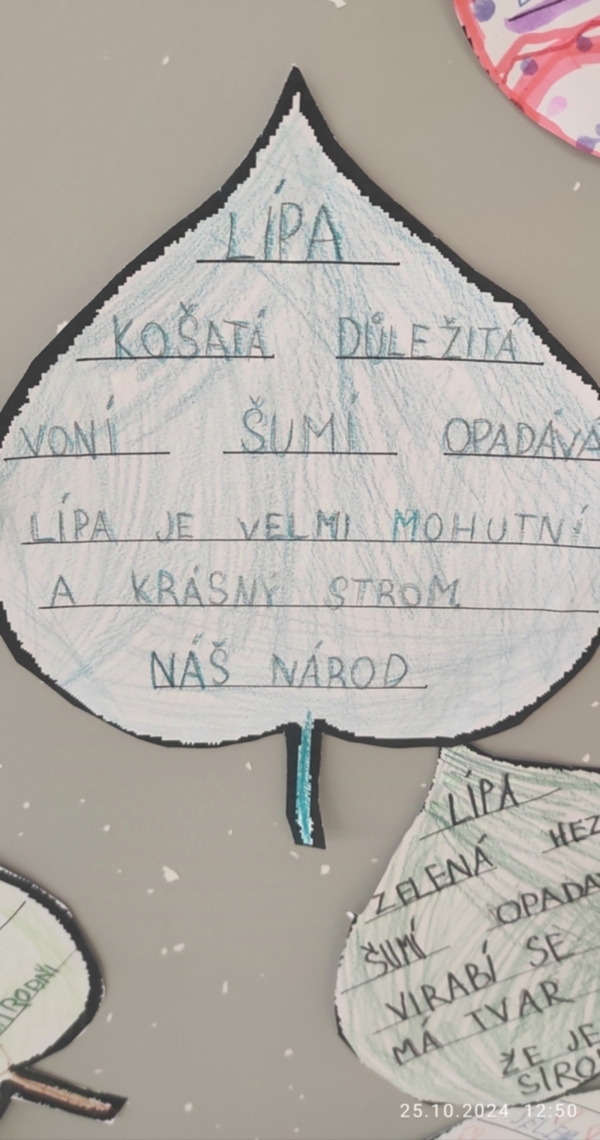 LÍPA
KOŠATÁ DŮLEŽITÁ
VONÍ ŠUMÍ OPADÁVÁ
LÍPA JE VELMI MOHUTNÍ
A KRÁSNÝ STROM
NÁŠ NÁROD
LÍPA
ZELENÁ HEZ
ŠUMÍ OPADA
VIRABÍ SE
MÁ TVAR
ŽE JE
25.10.2024 12:50